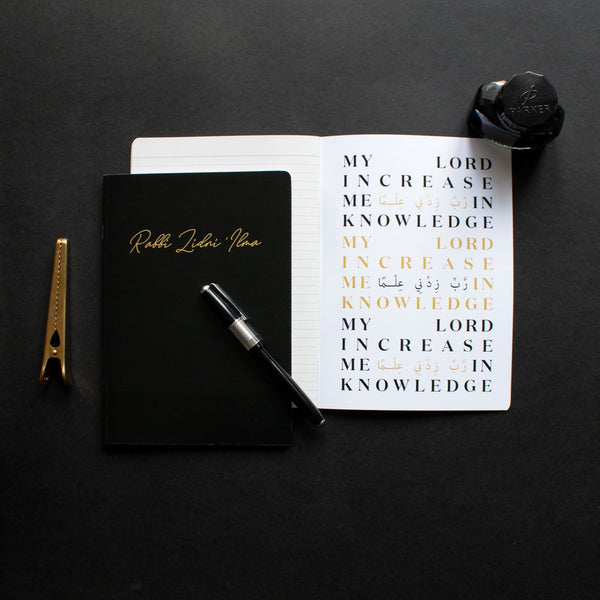 Rabbi Zidni 'Ilma
MY LORD
INCREASE
ME رَبِّ زِدْنِي عِلْمًا IN
KNOWLEDGE
MY LORD
INCREASE
ME رَبِّ زِدْنِي عِلْمًا IN
KNOWLEDGE
MY LORD
INCREASE
ME رَبِّ زِدْنِي عِلْمًا IN
KNOWLEDGE
PARKER